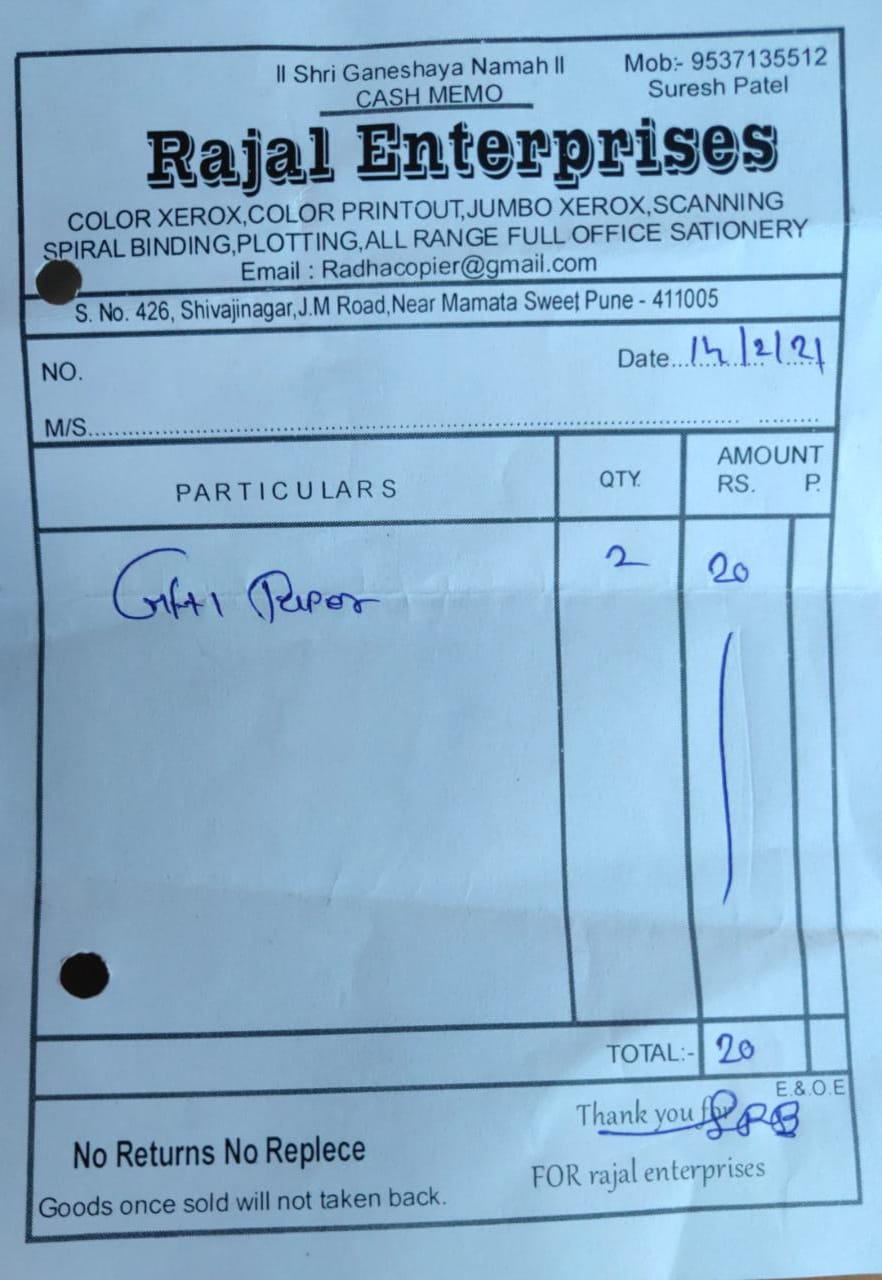 ॥ Shri Ganeshaya Namah ॥
Mob:- 9537135512
CASH MEMO
Suresh Patel
Rajal Enterprises
COLOR XEROX,COLOR PRINTOUT,JUMBO XEROX,SCANNING
SPIRAL BINDING,PLOTTING,ALL RANGE FULL OFFICE SATIONERY
Email : Radhacopier@gmail.com
S. No. 426, Shivajinagar,J.M Road,Near Mamata Sweet Pune - 411005
NO.
Date... /2/21
M/S
PARTICULARS QTY. AMOUNT
RS. P.
2 20
TOTAL:- 20
E.&.O.E
Thank you for
No Returns No Replece
FOR rajal enterprises
Goods once sold will not taken back.